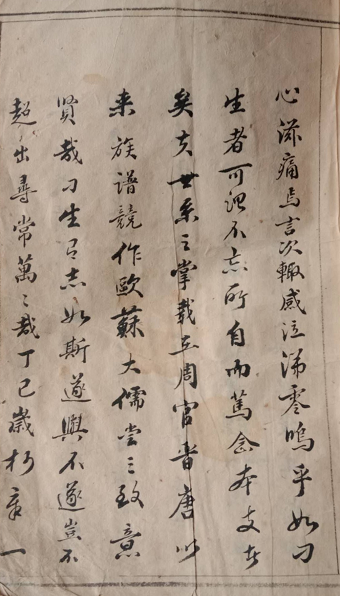 心滋痛焉言次輙感泣涕零嗚乎如刁
生者可謂不忘所自而篤念本支者
矣夫世系之掌載在周官晋唐以
来族譜競作歐蘇大儒尝三致意
賢哉刁生有志如斯遂興不遂豈不
超出尋常萬〻哉丁巳歲杪 一